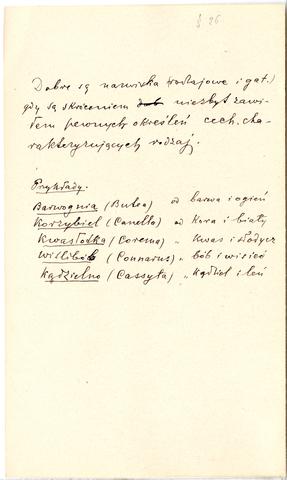 § 26
Dobre są nazwiska (rodzajowe i gat.)
gdy są skróceniem niezbyt zawi-
łem pewnych określeń cech cha-
rakteryzujących rodzaj.
Przykłady.
Barwognia (Butea) od barwa i ogień
Korzybiel (Canella) od Kora i biały
Kwasłodka (Corema) „ Kwas i słodycz
Wislibób (Connarus) „ bób i wisieć
Kądzielno (Cassyta) „ Kądziel i len